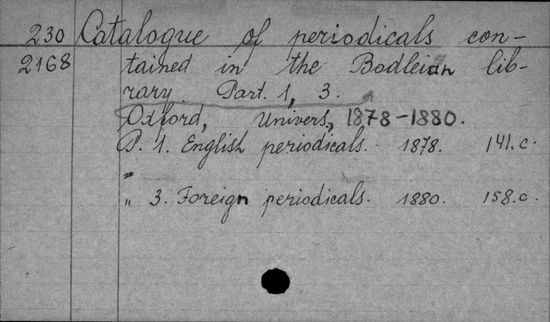 230 Catalogue of periodicals con-
2168 tained in the Bodleian lib-
rary Part. 1, 3.
Oxford, Univers, 1878-1880.
P. 1. English periodicals. 1878. 141.c.
"
„ 3. Foreign periodicals. 1880. 158.c.